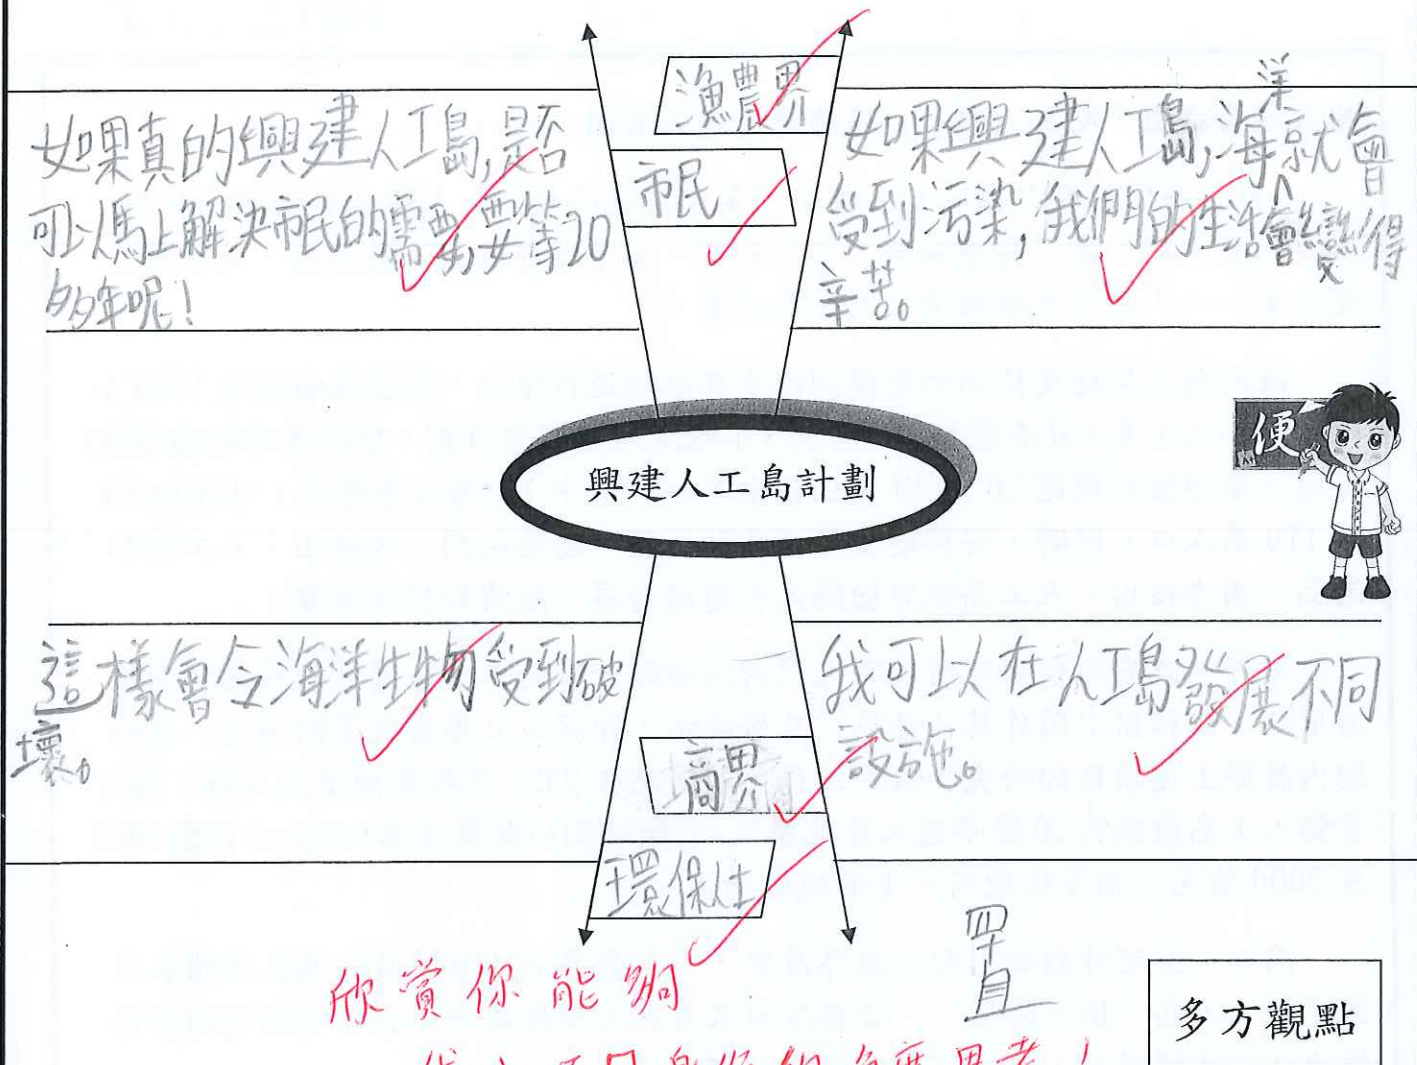 漁農界
如果真的興建人工島,是否
可以馬上解決市民的需要,要等20
多年呢!
市民
如果興建人工島,海洋就會
受到污染,我們的生活會變得
辛苦。
興建人工島計劃
便
這樣會令海洋生物受到破
壞。
我可以在人工島發展不同
設施。
商界
環保人士
欣賞你能夠
置
多方觀點